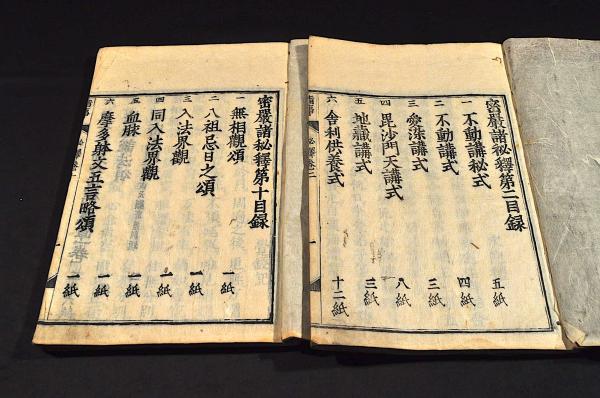 密嚴諸秘釋第二目録
一 不動講秘式 五紙
二 不動講式 四紙
三 愛染講式 三紙
四 毘沙門天講式 八紙
五 地藏講式 三紙
六 舍利供養式 十二紙
密嚴諸秘釋第十目録
一 無相觀頌 一紙
二 八祖忌日之頌 一紙
三 入法界觀 一紙
四 同入法界觀 一紙
五 血脉 一紙
六 摩多躰文五言略頌 一紙